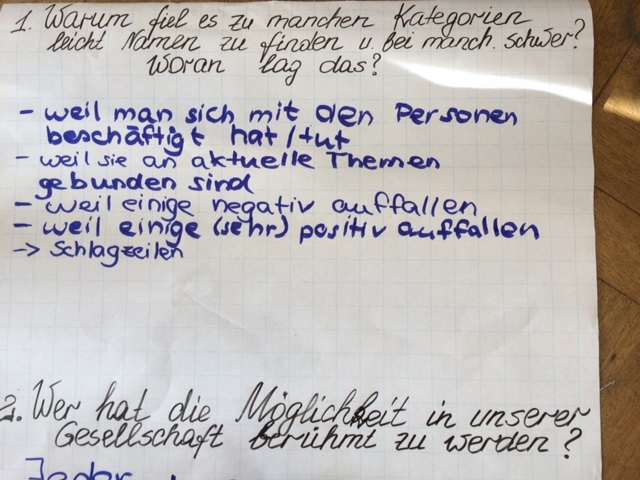 1. Warum fiel es zu manchen Kategorien
leicht Namen zu finden u. bei manch. schwer?
Woran lag das?
- weil man sich mit den Personen
beschäftigt hat/tut
- weil sie an aktuelle Themen
gebunden sind
- weil einige negativ auffallen
- weil einige (sehr) positiv auffallen
-> Schlagzeilen
2. Wer hat die Möglichkeit in unserer
Gesellschaft berühmt zu werden?
Jeder